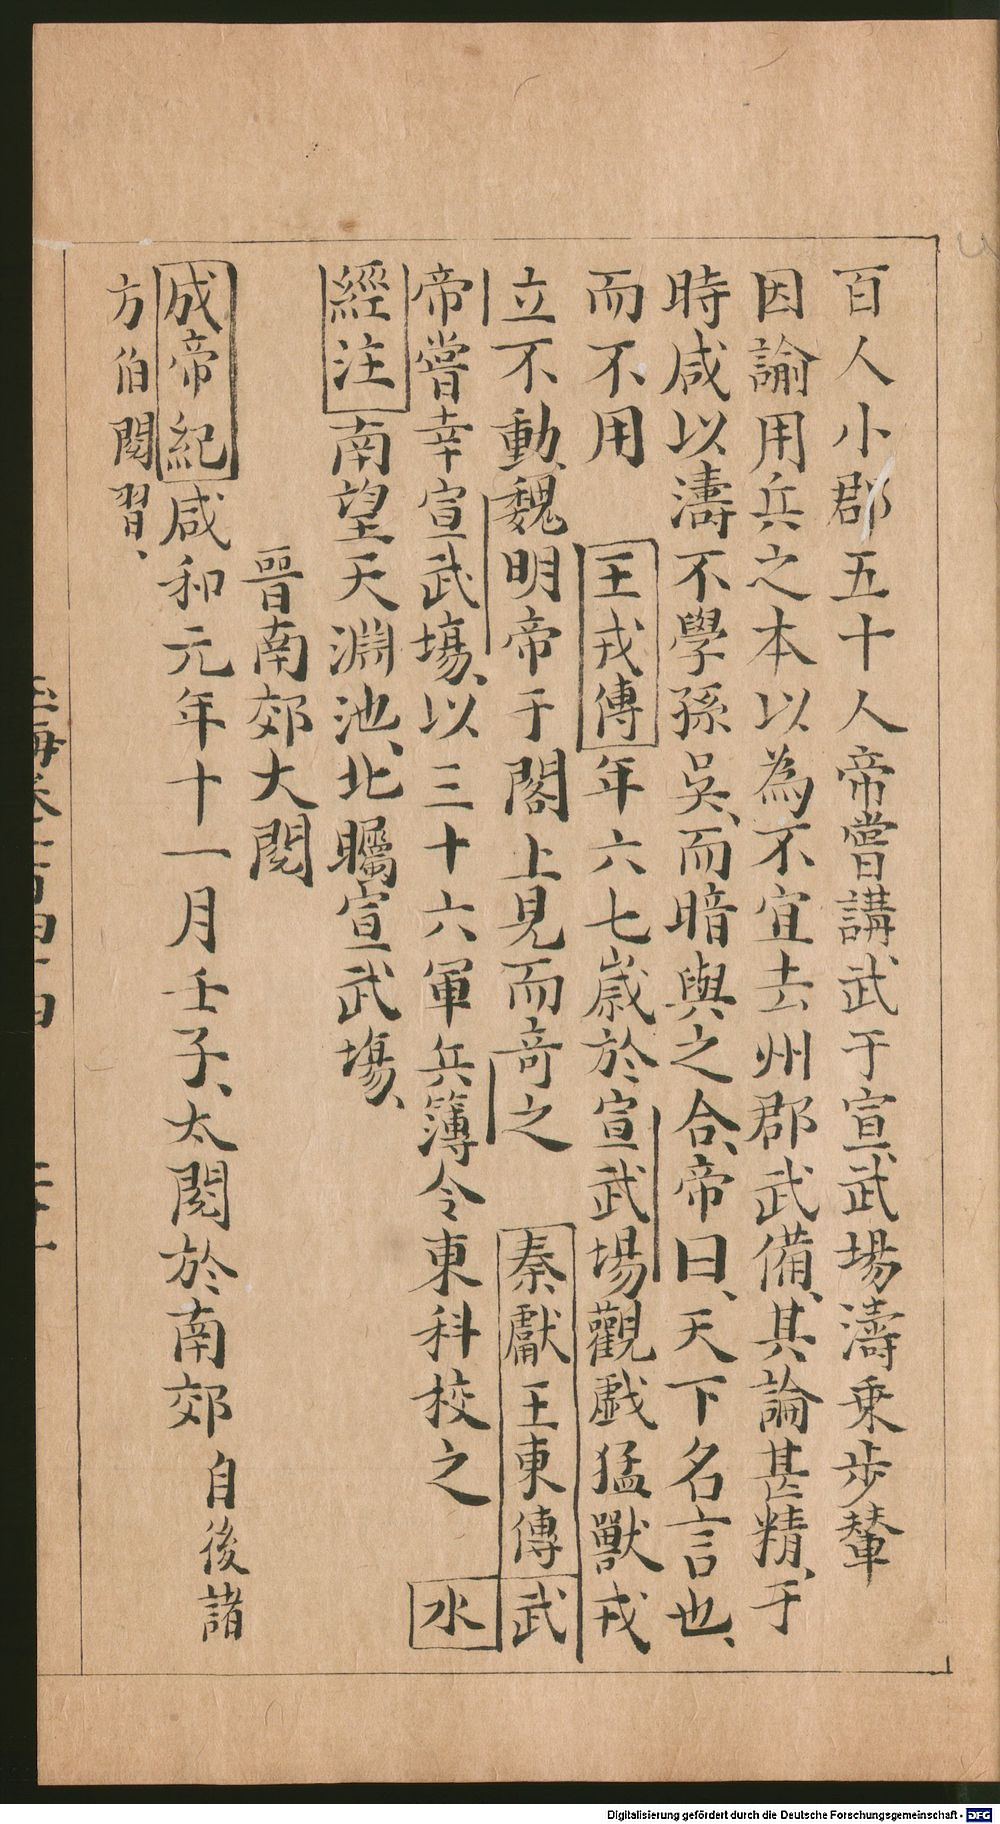 百人小郡五十人帝嘗講武于宣武場濤乗步輦
因諭用兵之本以為不宜去州郡武備、其論甚精、于
時咸以濤不學孫吳、而暗與之合、帝曰、天下名言也、
而不用 王戎傳年六七嵗於宣武場觀戲猛獸戎
立不動、魏明帝于閣上見而竒之 秦獻王東傳武
帝嘗幸宣武塲、以三十六軍兵簿令東科校之 水
經注南望天淵池、北矚宣武塲、
晉南郊大閱
成帝紀咸和元年十一月壬子、太閱於南郊 自後諸
方伯閱習、
Digitalisierung gefördert durch die Deutsche Forschungsgemeinschaft - DFG